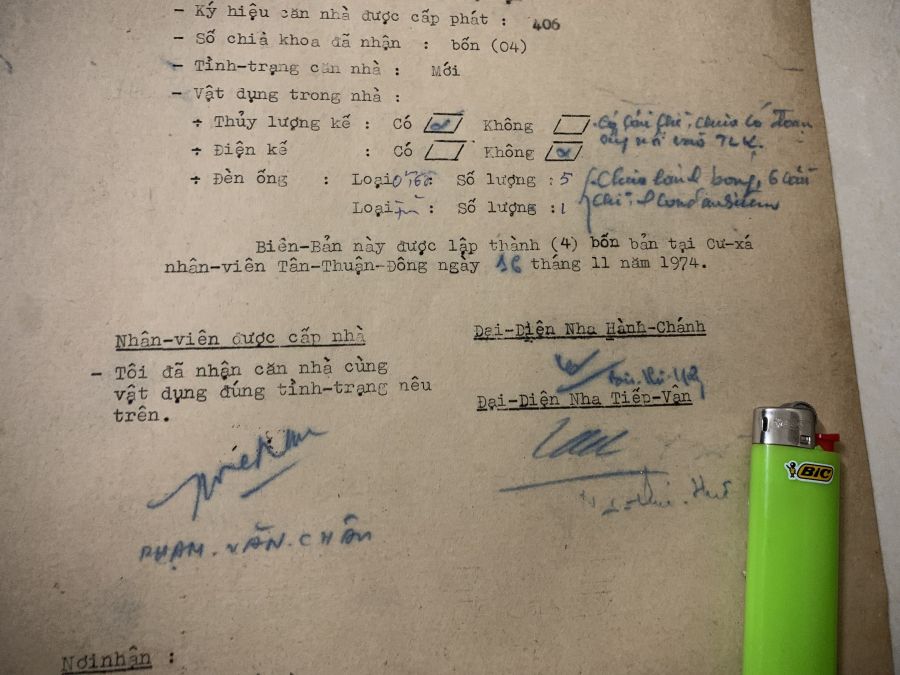 - Ký hiệu căn nhà được cấp phát : 406
- Số chià khoa đã nhận : bốn (04)
- Tình-trạng căn nhà : Mới
- Vật dụng trong nhà :
÷ Thủy lượng kế : Có Không Có cầu chì, chưa có đoạn
nối vào TLK.
÷ Điện kế : Có Không
÷ Đèn ống : Loại Số lượng : 5 Chưa bong, 6 cầu
Loại : Số lượng : 1 chì
Biên-Bản này được lập thành (4) bốn bản tại Cư-xá
nhân-viên Tân-Thuận-Đông ngày 16 tháng 11 năm 1974.
Nhân-viên được cấp nhà
Đại-Diện Nha Hành-Chánh
- Tôi đã nhận căn nhà cùng
vật dụng đúng tình-trạng nêu
trên.
Đại-Diện Nha Tiếp-Vận
PHẠM.VĂN.CHÂN
BIC
Nơi nhận :